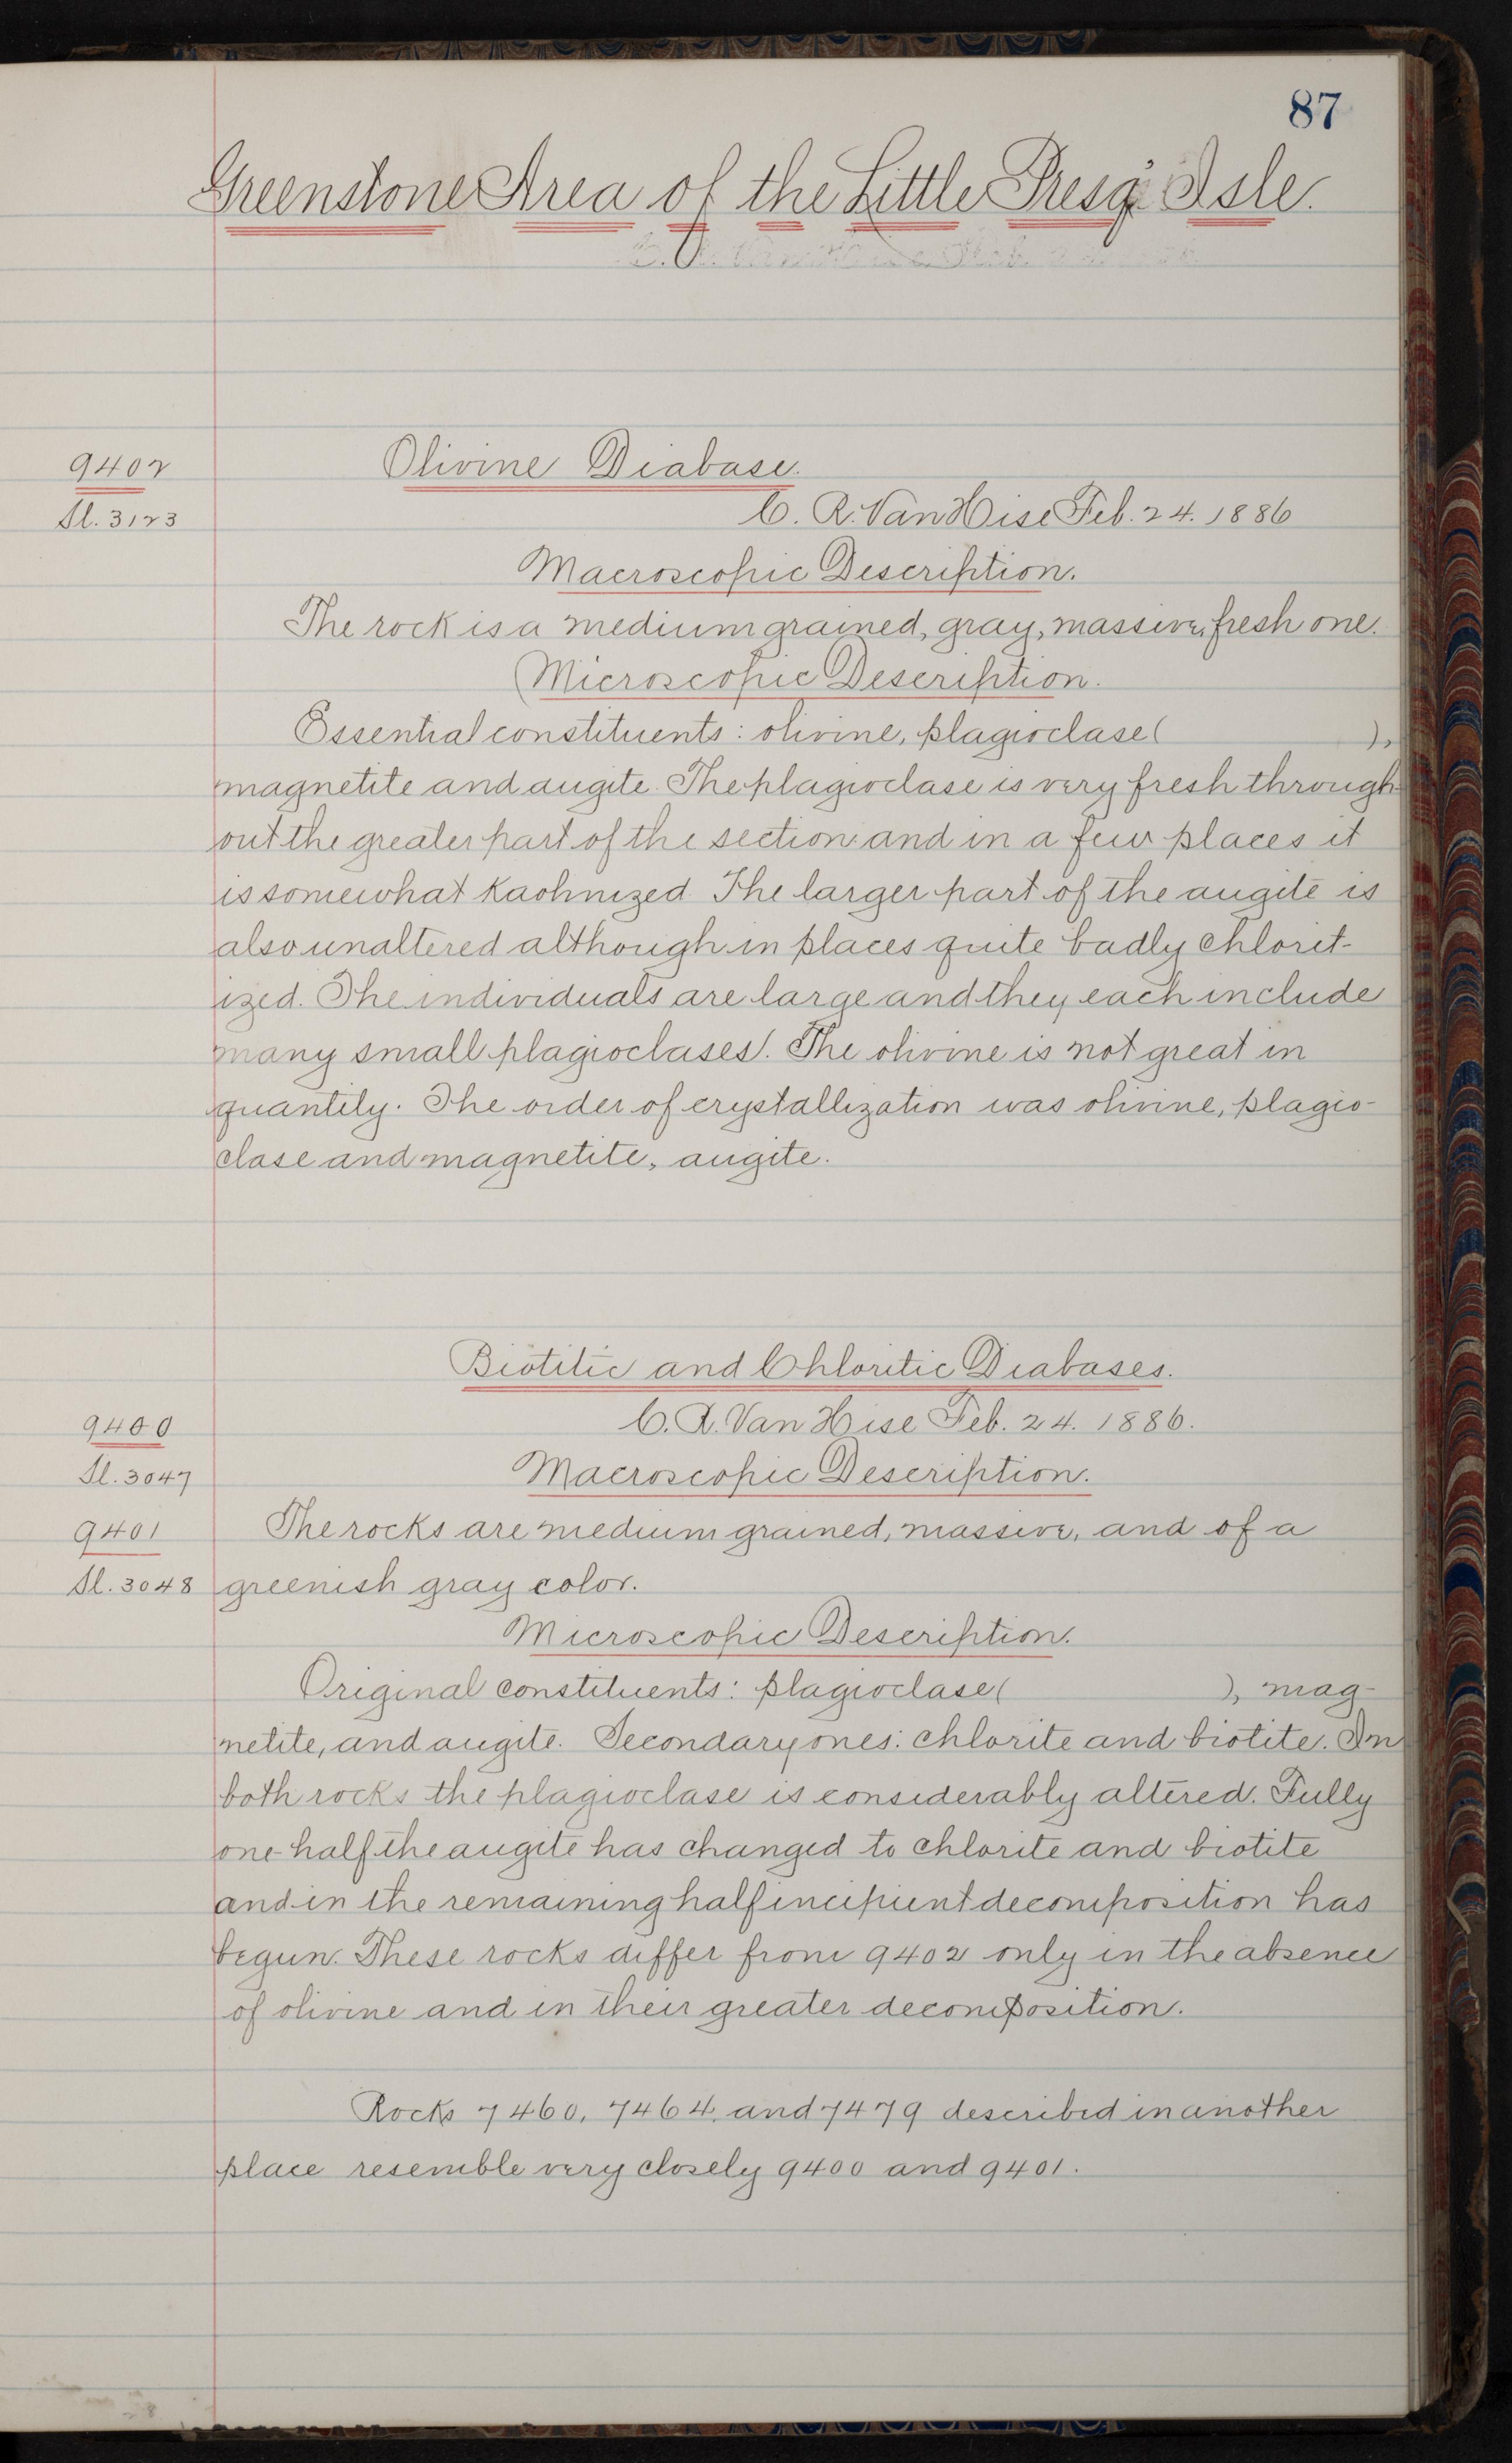 87
Greenstone Area of the Little Presq' Isle.
9402
Olivine Diabase.
Sl. 3123
C. R. Van Hise Feb. 24. 1886
Macroscopic Description.
The rock is a medium grained, gray, massive, fresh one.
Microscopic Description.
Essential constituents: olivine, plagioclase ( ),
magnetite and augite. The plagioclase is very fresh through-
out the greater part of the section and in a few places it
is somewhat kaolinized. The larger part of the augite is
also unaltered although in places quite badly chlorit-
ized. The individuals are large and they each include
many small plagioclases. The olivine is not great in
quantity. The order of crystallization was olivine, plagio-
clase and magnetite, augite.
Biotitic and Chloritic Diabases.
9400
C. R. Van Hise Feb. 24. 1886.
Sl. 3047
Macroscopic Description.
9401
The rocks are medium grained, massive, and of a
Sl. 3048
greenish gray color.
Microscopic Description.
Original constituents: plagioclase ( ), mag-
netite, and augite. Secondary ones: chlorite and biotite. In
both rocks the plagioclase is considerably altered. Fully
one-half the augite has changed to chlorite and biotite
and in the remaining half incipient decomposition has
begun. These rocks differ from 9402 only in the absence
of olivine and in their greater decomposition.
Rocks 7460, 7464, and 7479 described in another
place resemble very closely 9400 and 9401.